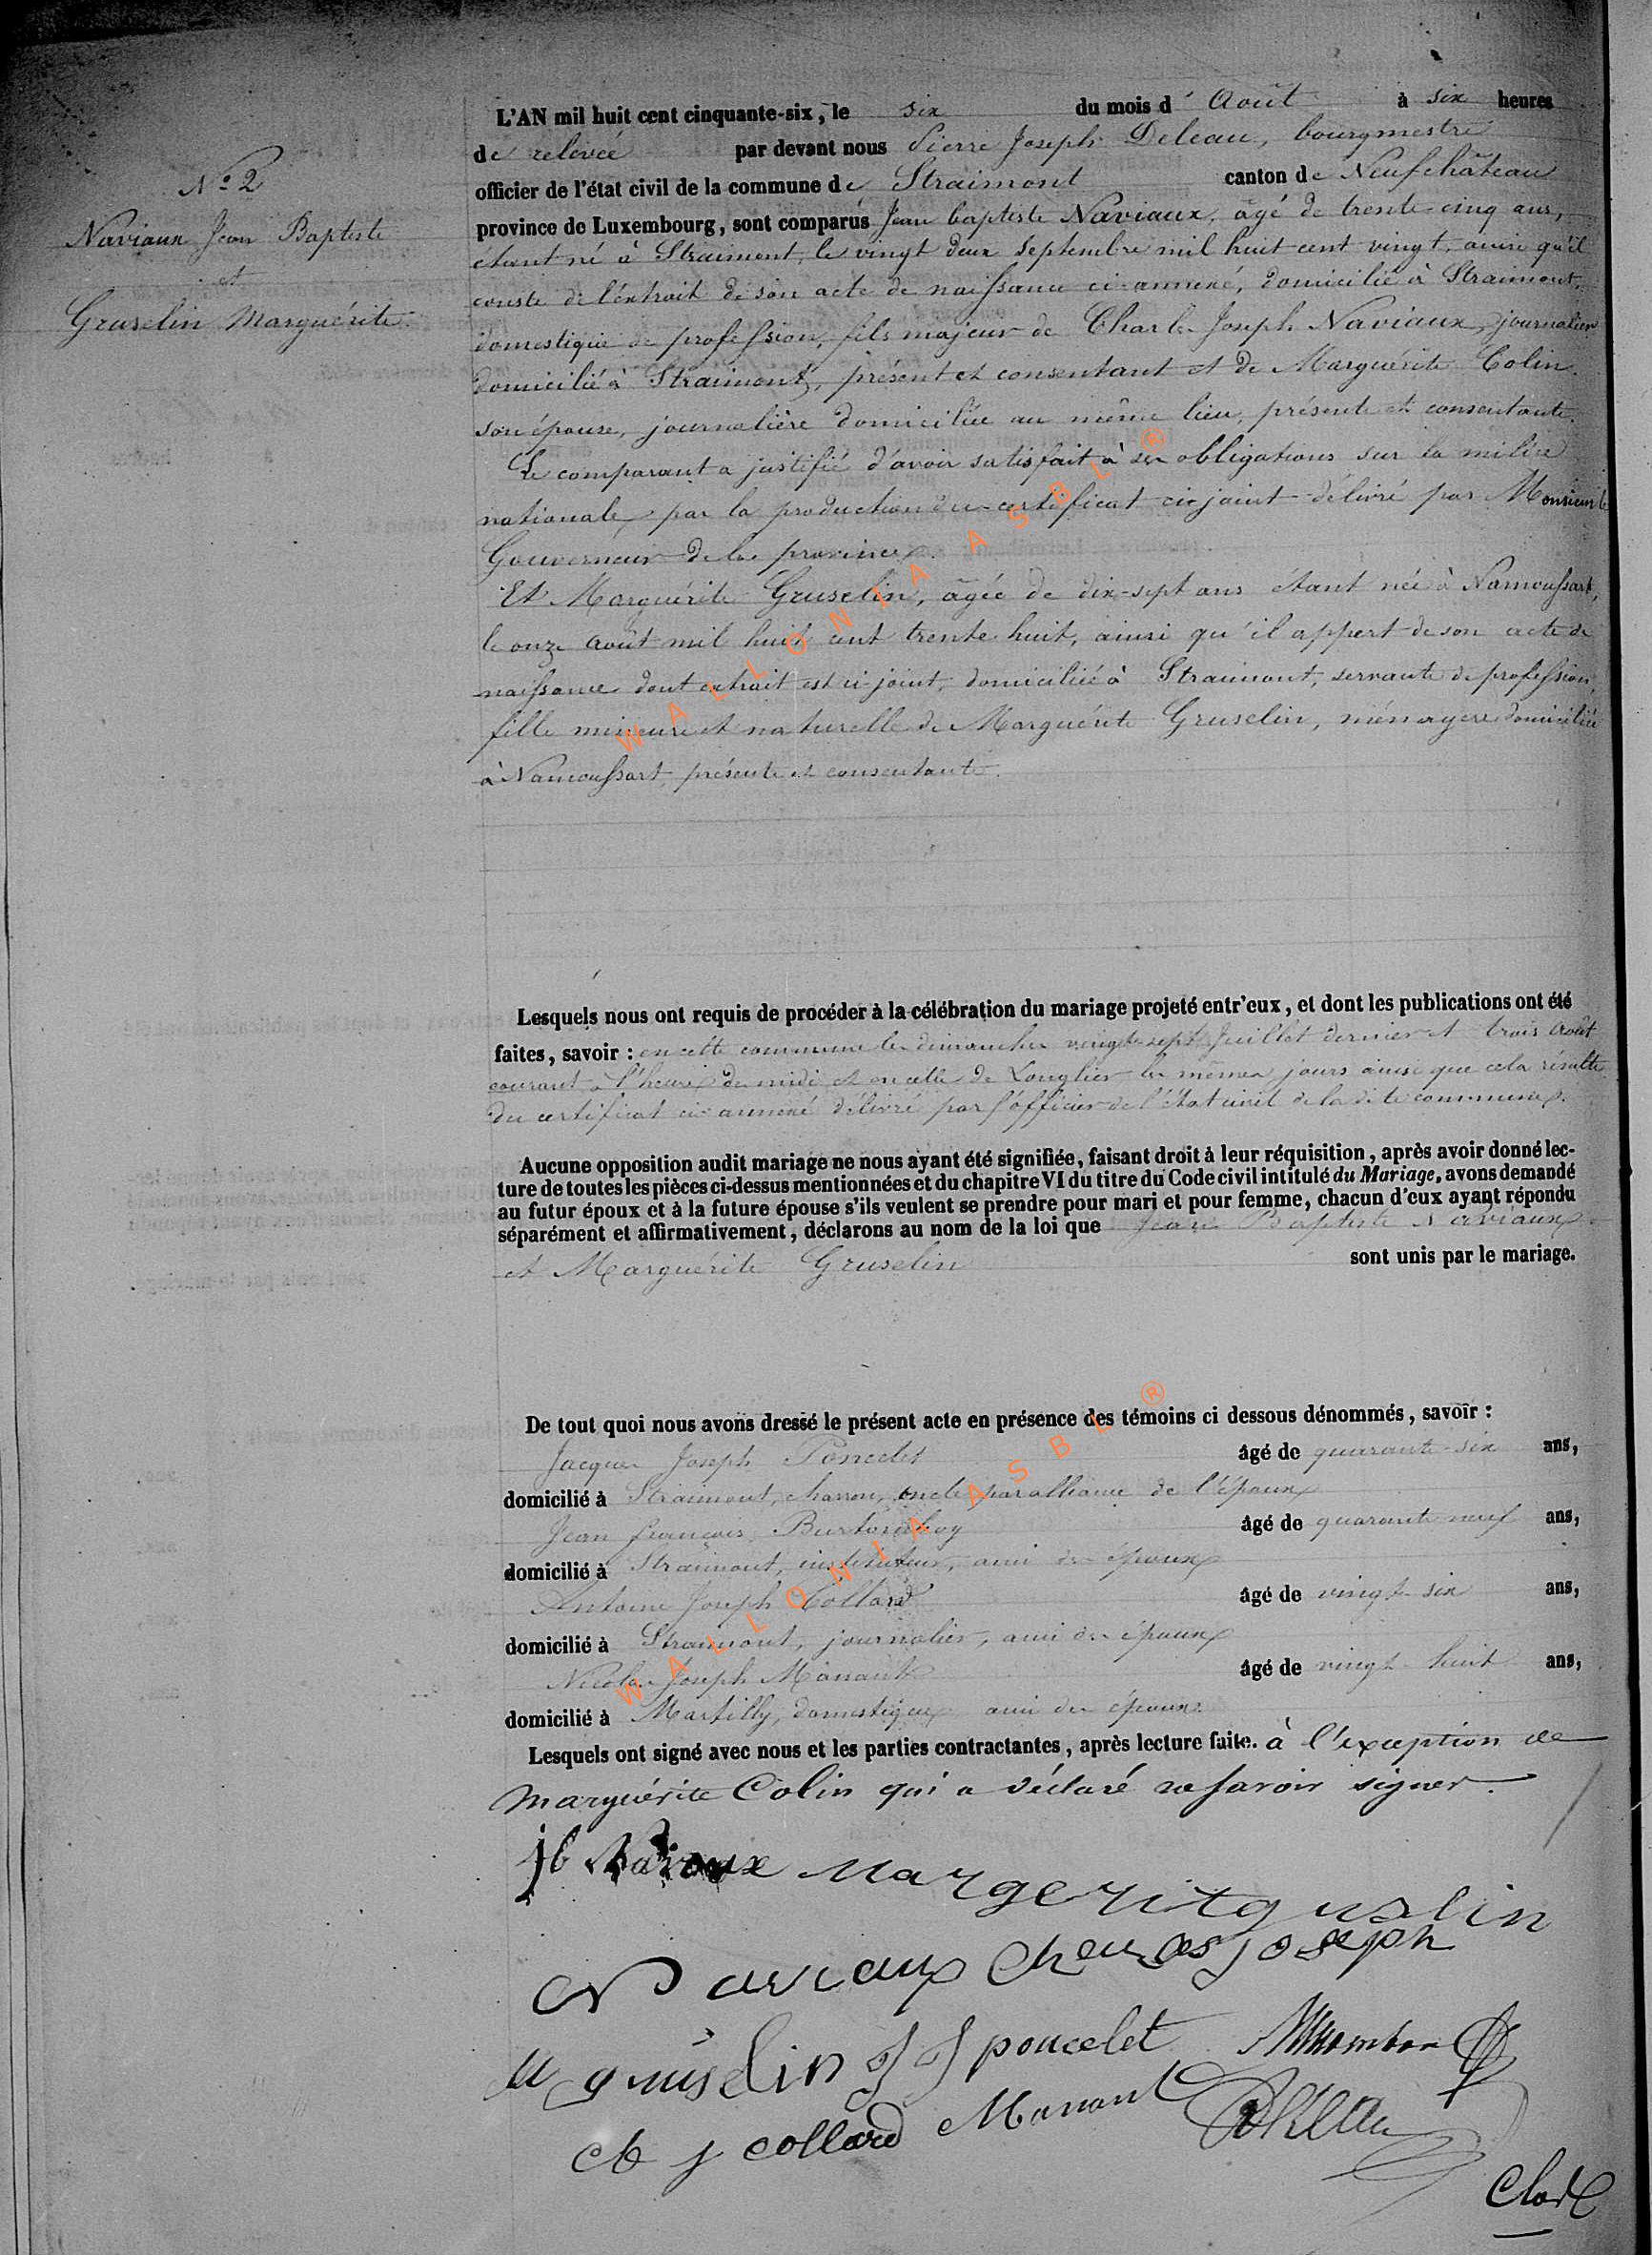 N° 2
Naviaux Jean Baptiste
et
Gruselin Marguérite
L'AN mil huit cent cinquante-six, le six du mois d'Août à six heures
de relevée par devant nous Pierre Joseph Deleau, bourgmestre
officier de l'état civil de la commune de Straimont canton de Neufchâteau
province de Luxembourg, sont comparus Jean baptiste Naviaux, âgé de trente cinq ans,
étant né à Straimont, le vingt deux Septembre mil huit cent vingt, ainsi qu'il
conste de l'éxtrait de son acte de naissance ci-annexé, domicilié à Straimont,
domestique de profession, fils majeur de Charles Joseph Naviaux, journalier
domicilié à Straimont, présent et consentant et de Marguérite Colin
son épouse, journalière domiciliée au même lieu, présente et consentante.
Le comparant a justifié d'avoir satisfait à ses obligations sur la milice
nationale, par la production du certificat ci-joint délivré par Monsieur le
Gouverneur de la province.
Et Marguérite Gruselin, âgée de dix-sept ans étant née à Namoussart,
le onze août mil huit cent trente huit, ainsi qu'il appert de son acte de
naissance dont extrait est ci-joint, domiciliée à Straimont, servante de profession,
fille mineure et naturelle de Marguérite Gruselin, ménagère domiciliée
à Namoussart, présente et consentante.
Lesquels nous ont requis de procéder à la célébration du mariage projeté entr'eux, et dont les publications ont été
faites, savoir : en cette commune les dimanches vingt-sept Juillet dernier et trois Août
courant à l'heure de midi et en celle de Longlier les mêmes jours ainsi que cela résulte
du certificat ci-annexé délivré par l'officier de l'état civil de la dite commune.
Aucune opposition audit mariage ne nous ayant été signifiée, faisant droit à leur réquisition, après avoir donné lec-
ture de toutes les pièces ci-dessus mentionnées et du chapitre VI du titre du Code civil intitulé du Mariage, avons demandé
au futur époux et à la future épouse s'ils veulent se prendre pour mari et pour femme, chacun d'eux ayant répondu
séparément et affirmativement, déclarons au nom de la loi que Jean Baptiste Naviaux
et Marguérite Gruselin sont unis par le mariage.
De tout quoi nous avons dressé le présent acte en présence des témoins ci dessous dénommés, savoir :
Jacques Joseph Poncelet âgé de quarante-six ans,
domicilié à Straimont, charron, oncle par alliance de l'époux
Jean françois âgé de quarante neuf ans,
domicilié à Straimont, instituteur, ami des époux
Antoine Joseph Collard âgé de vingt-six ans,
domicilié à Straimont, journalier, ami des époux
Nicolas Joseph Manant âgé de vingt huit ans,
domicilié à Martilly, domestique, ami des époux
Lesquels ont signé avec nous et les parties contractantes, après lecture faite. à l'exception de
Marguérite Colin qui a déclaré ne savoir signer.
jb Naviaux Margerit guslin
Naviaux Charles joseph
M gruislin J J poncelet
j collard Manant Deleau
WALLONIA ASBL ®
WALLONIA ASBL ®